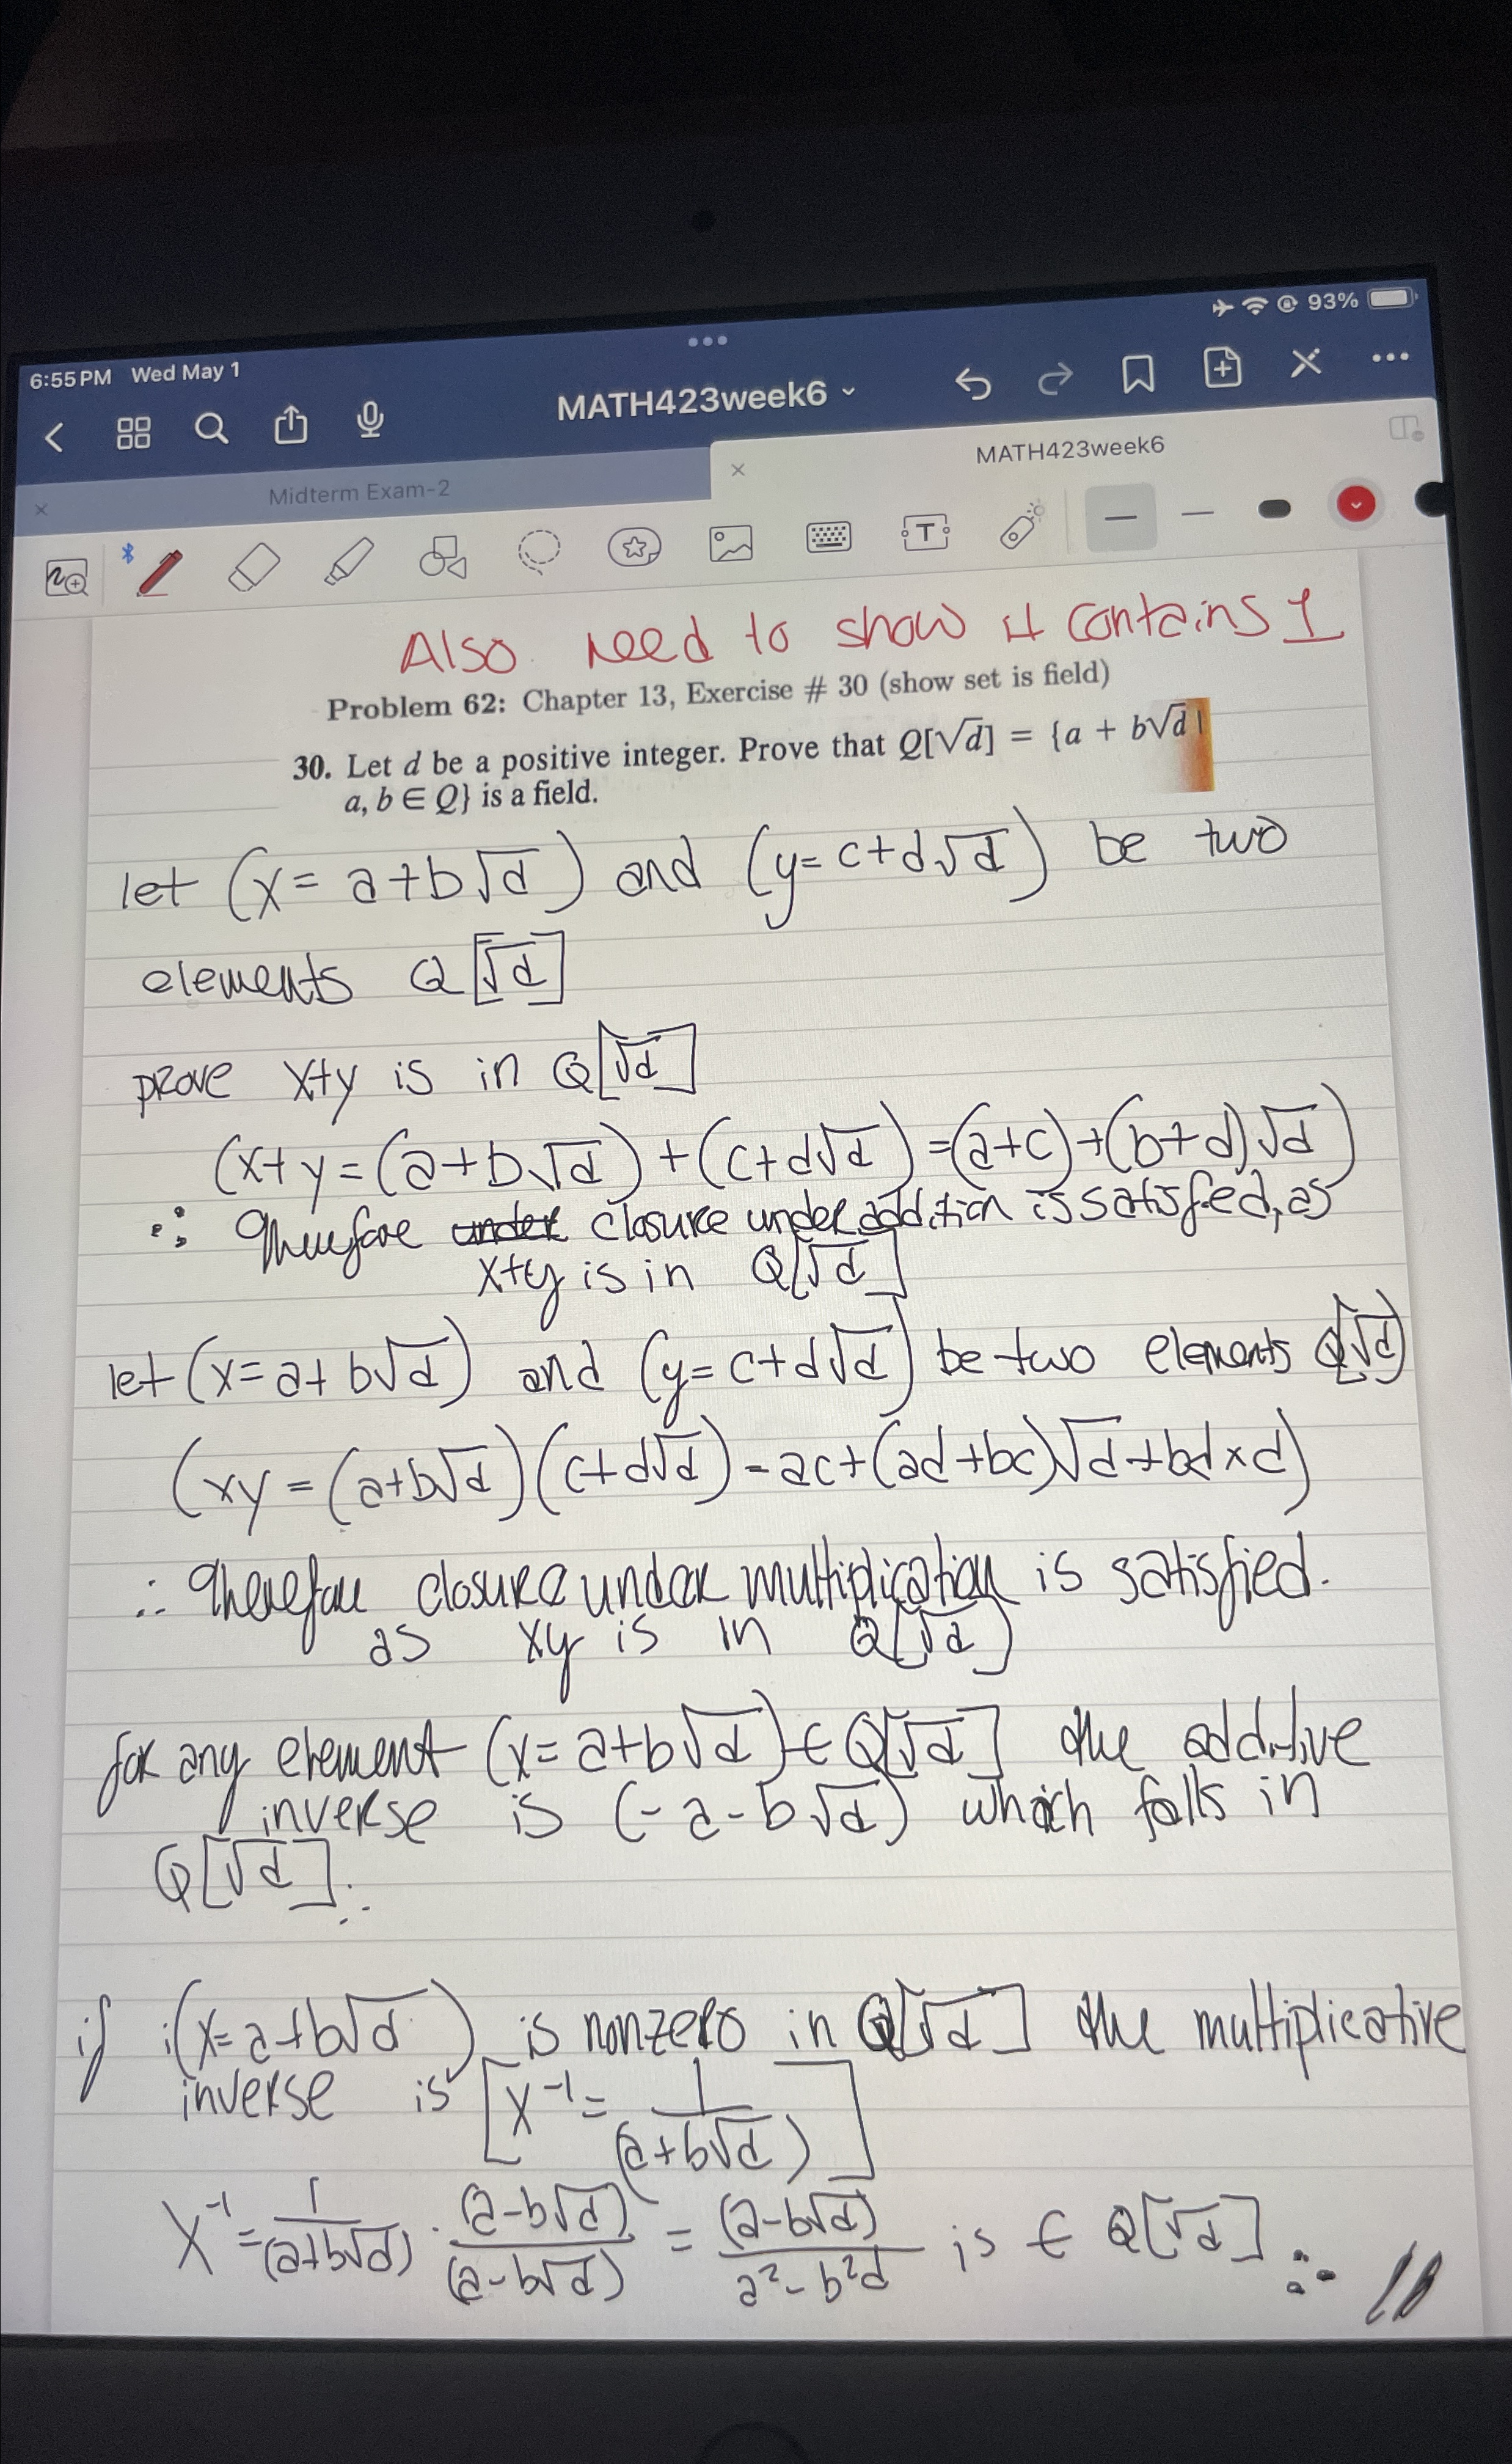 93%
6:55 PM Wed May 1
MATH423week6
Midterm Exam-2
MATH423week6
Also need to show it contains 1
Problem 62: Chapter 13, Exercise # 30 (show set is field)
30. Let d be a positive integer. Prove that Q[√d] = {a + b√d |
a, b ∈ Q} is a field.
let (x = a+b√d) and (y= c+d√d) be two
elements Q[√d]
prove x+y is in Q[√d]
(x+y = (a+b√d) + (c+d√d) = (a+c)+(b+d)√d)
∴ Therefore under closure under addition is satisfied, as
x+y is in Q[√d]
let (x=a+b√d) and (y=c+d√d) be two elements Q[√d]
(xy = (a+b√d)(c+d√d) = ac+(ad+bc)√d+bd×d)
∴ Therefore closure under multiplication is satisfied.
as xy is in Q[√d]
for any element (x=a+b√d) ∈ Q[√d] the additive
inverse is (-a-b√d) which falls in
Q[√d] ∴
if (x=a+b√d) is nonzero in Q[√d] the multiplicative
inverse is [x⁻¹ = 1/(a+b√d)]
x⁻¹ = 1/(a+b√d) · (a-b√d)/(a-b√d) = (a-b√d)/(a²-b²d) is ∈ Q[√d] ∴